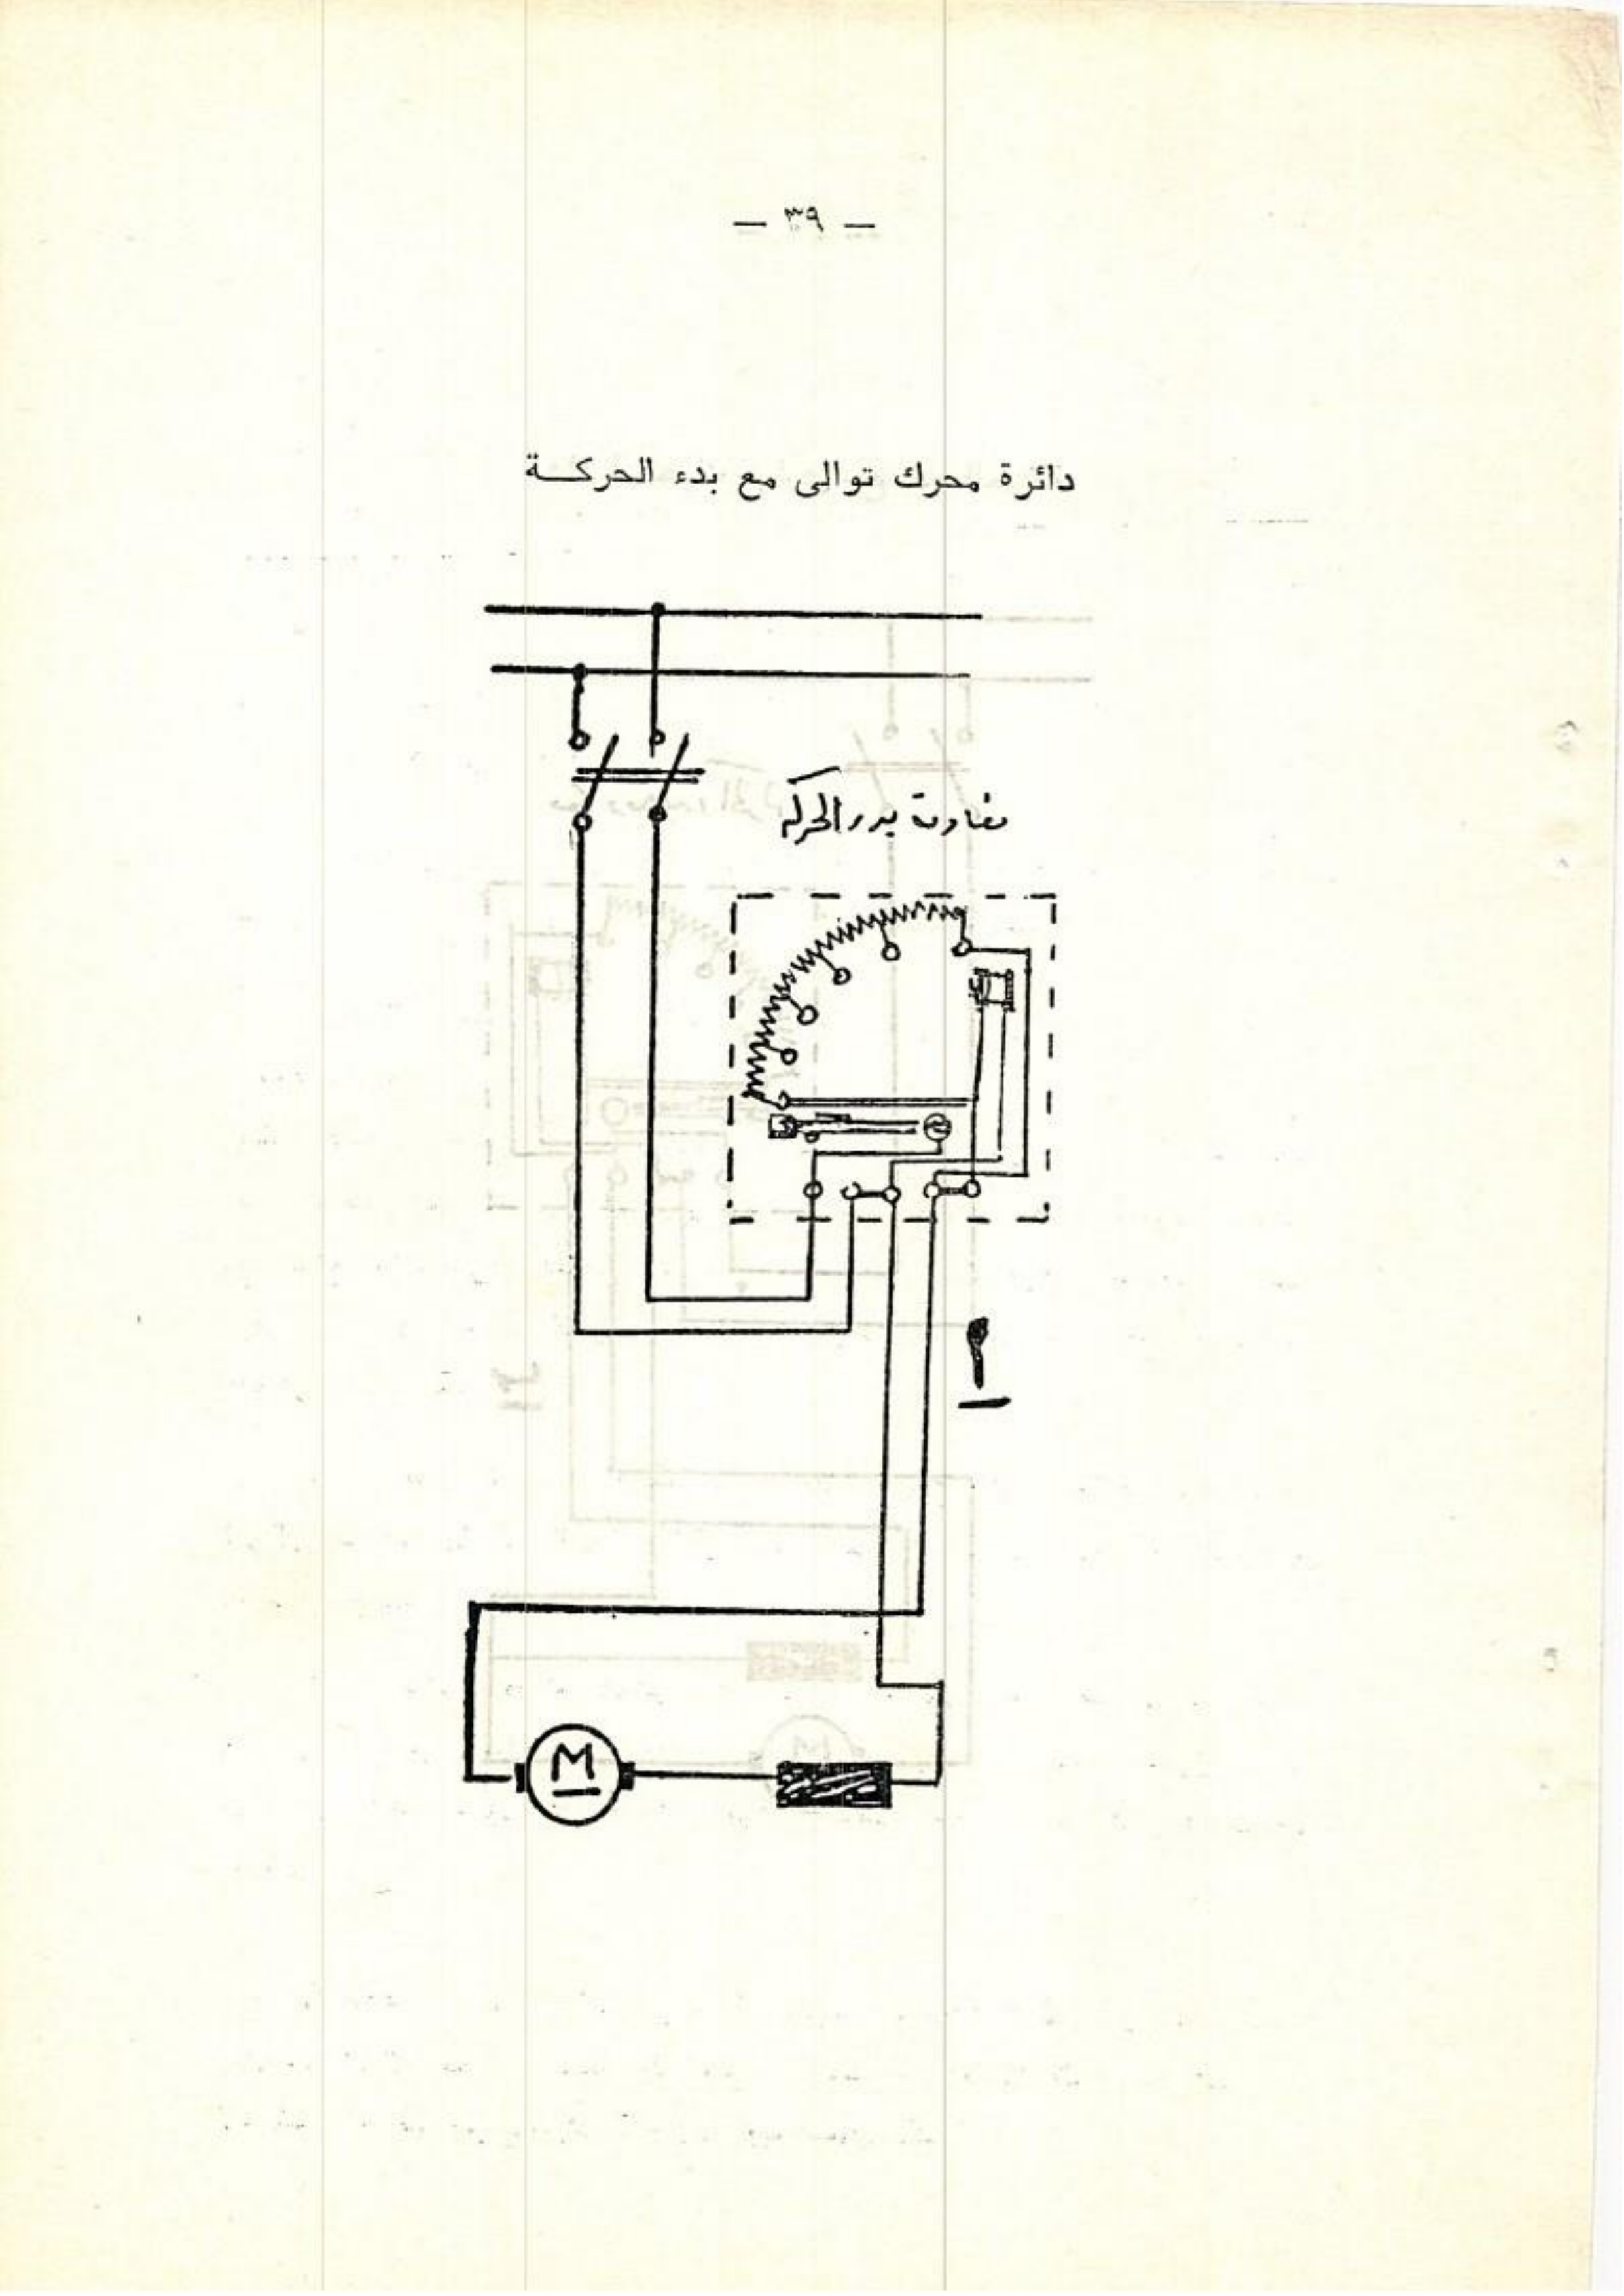 — ٣٩ —
دائرة محرك توالى مع بدء الحركــة
مقاومة بدء الحركة
M